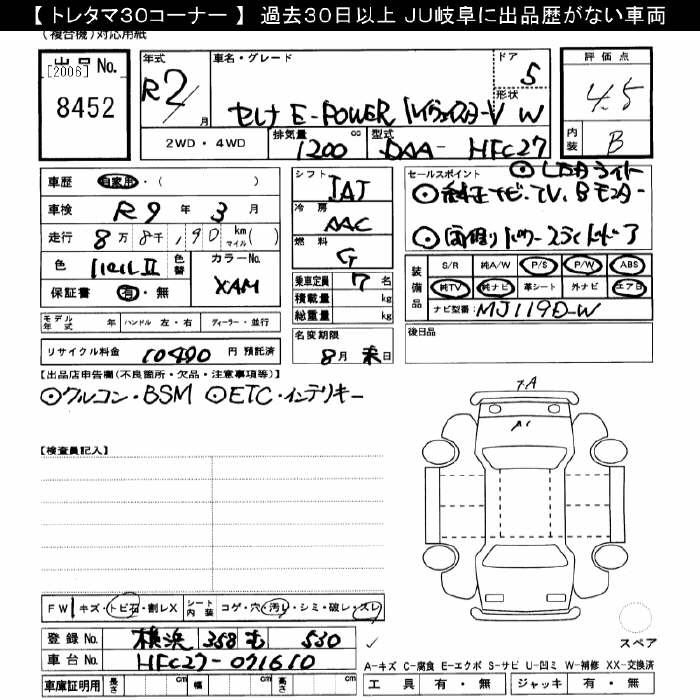 【 トレタマ30コーナー 】 過去30日以上 JU岐阜に出品歴がない車両
(複合機)対応用紙
出品 No.
[2006]
8452
年式 R2 月
車名・グレード
セレナ E-POWER ハイウェイスターV
ドア 5
形状 W
評価点 4.5
内装 B
2WD・4WD
排気量 1200 cc
型式 DAA- HFC27
車歴 自家用・( )
車検 R9 年 3 月
走行 8万8千,190 km マイル( )
色 色替
カラーNo. XAM
保証書 有・無
シフト IAT
冷房 AAC
燃料 G
乗車定員 7 名
積載量 kg
総重量 kg
セールスポイント ◎LEDライト
◎純正ナビ.TV、Bモニター
◎両側パワースライドドア
装備品 S/R 純A/W P/S P/W ABS
純TV 純ナビ 革シート 外ナビ エアB
ナビ型番: MJ119D-W
モデル年式 年 ハンドル 左・右 ディーラー・並行
リサイクル料金 10490 円 預託済
名変期限
8月 末日
後日品
【出品店申告欄(不良箇所・欠品・注意事項等)】
◎クルコン・BSM ◎ETC・インテリキー
【検査員記入】
7A
A1
FW キズ・トビ石・割レX シート内装 コゲ・穴・汚レ・シミ・破レ・スレ
登録 No. 横浜 358 も 530
車台 No. HFC27-071610
車庫証明用 長さ cm 幅 cm 高さ cm
スペア
A-キズ C-腐食 E-エクボ S-サビ U-凹ミ W-補修 XX-交換済
工具 有・無 ジャッキ 有・無